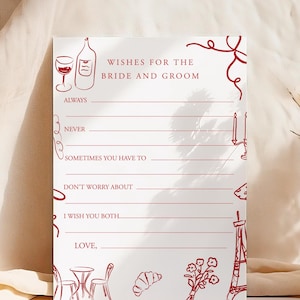 WISHES FOR THE
BRIDE AND GROOM
ALWAYS
NEVER
SOMETIMES YOU HAVE TO
DON'T WORRY ABOUT
I WISH YOU BOTH...
LOVE,